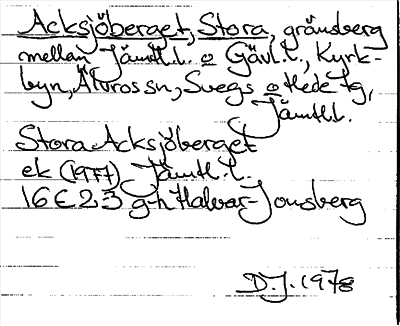 Acksjöberget, Stora, gränsberg
mellan Jämtl.l. o Gävl.l., Kyrk-
byn, Älvros sn, Svegs o Hede tg,
Jämtl.l.
Stora Acksjöberget
ek (1977) Jämtl.l.
16E 2-3 g-h Halvar-Jonsberg
D.J. 1978